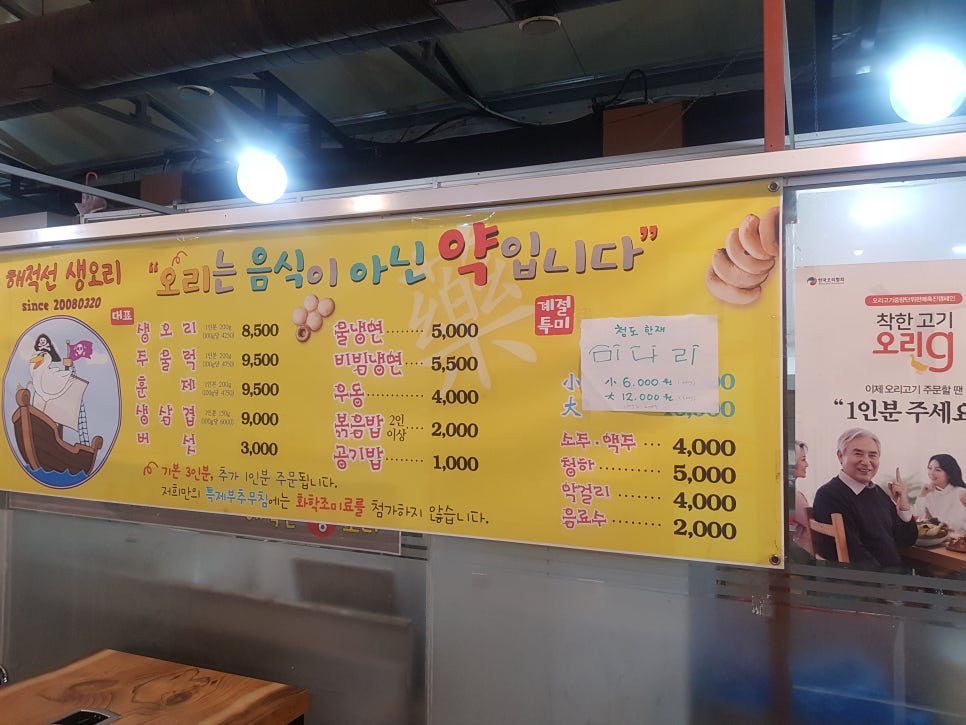 해적선 생오리
since 20080320
"오리는 음식이 아닌 약입니다"
樂
대표
생오리 1인분 200g (100g당 4250) 8,500
주물럭 1인분 200g (100g당 4750) 9,500
훈제 1인분 200g (100g당 4750) 9,500
생삼겹 1인분 150g (100g당 6000) 9,000
버섯 3,000
물냉면 5,000
비빔냉면 5,500
우동 4,000
볶음밥 2인 이상 2,000
공기밥 1,000
계절
특미
청도 한재
미나리
小 6.000원
大 12.000원
小
大
소주·맥주 4,000
청하 5,000
막걸리 4,000
음료수 2,000
기본 3인분, 추가 1인분 주문됩니다.
저희만의 특제부추무침에는 화학조미료를 첨가하지 않습니다.
한국오리협회
착한 고기
오리g
이제 오리고기 주문할 땐
"1인분 주세요